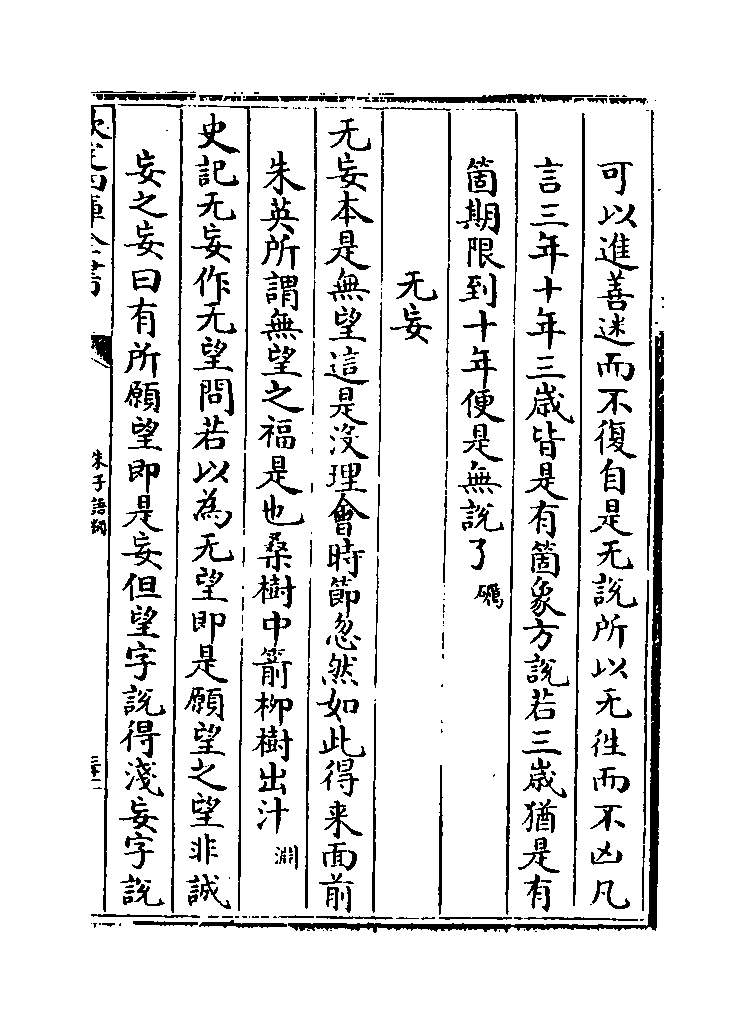 可以進善迷而不復自是无說所以无徃而不凶凡
言三年十年三歳皆是有箇象方說若三歳猶是有
箇期限到十年便是無說了 礪
无妄
无妄本是無望這是沒理會時節忽然如此得来面前
朱英所謂無望之福是也桑樹中箭柳樹出汁 淵
史記无妄作无望問若以為无望即是願望之望非誠
妄之妄曰有所願望即是妄但望字說得淺妄字說
欽定四庫全書
朱子語類